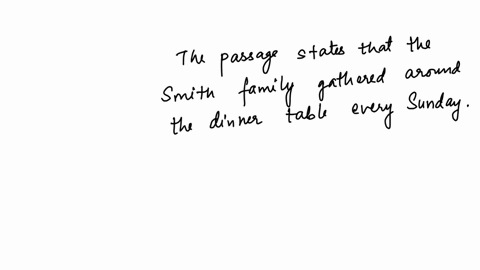 The passage states that the
Smith family gathered around
the dinner table every Sunday.